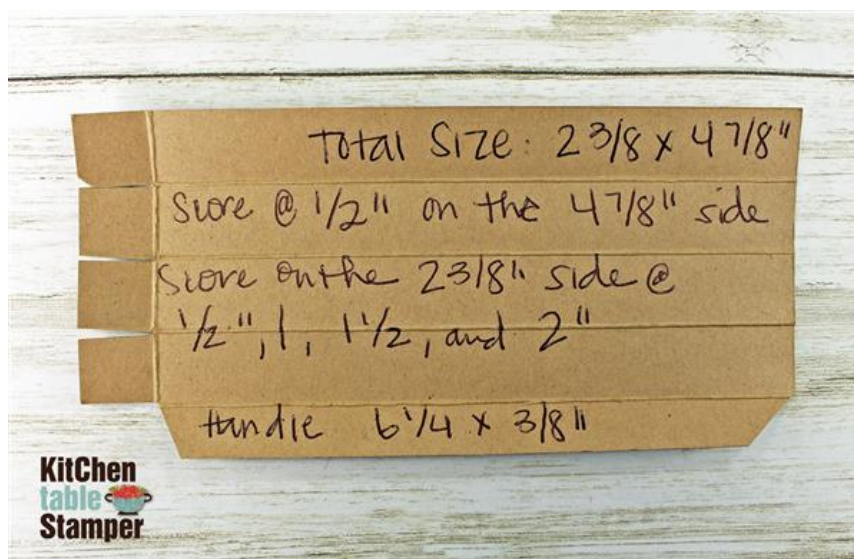 Total Size: 2 3/8 x 4 7/8"
Score @ 1/2" on the 4 7/8" side
Score on the 2 3/8" side @
1/2", 1, 1 1/2, and 2"
Handle 6 1/4 x 3/8"
KitChen
table
Stamper